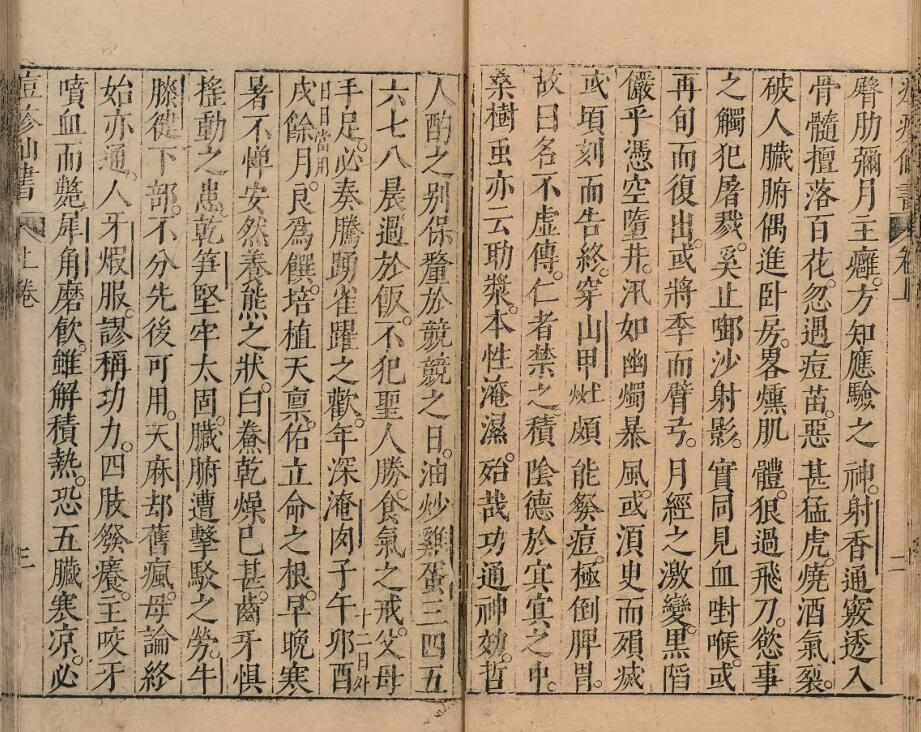 臀肋彌月主癱方知應驗之神射香通竅透入
骨髓擅落百花忽遇痘苗惡甚猛虎燒酒氣裂
破人臟腑偶進卧房畧燻肌體狠過飛刀慾事
之觸犯屠戮奚止啣沙射影實同見血尌喉或
再旬而復出或將季而臂弓月經之激變黑陷
儼乎憑空墮井汛如幽燭暴風或湏臾而殞滅
或頃刻而告終穿山甲𤆬煩能發痘極倒脾胃
故曰名不虛傳仁者禁之積陰德於㝠㝠之中
桑樹䖝亦云助漿本性淹濕殆哉功通神効哲
人酌之别保釐於競競之日油炒雞蛋三四五
六七八晨過於飯不犯聖人勝食氣之戒父母
手足必奏騰踴雀躍之歡年深淹肉子午夘酉
十二日外
日日當用
戌餘月良爲饌培植天禀佑立命之根早晚寒
暑不憚安然養熊之狀白鲞乾燥已甚齒牙惧
搖動之患乾笋堅牢太固臟腑遭擊駁之勞牛
膝健下部不分先後可用天麻却舊瘋毋論終
始亦通人牙煆服謬稱功力四肢發癢主咬牙
噴血而斃犀角磨飲雖解積熱恐五臟寒凉必
痘疹仙書
上卷
三